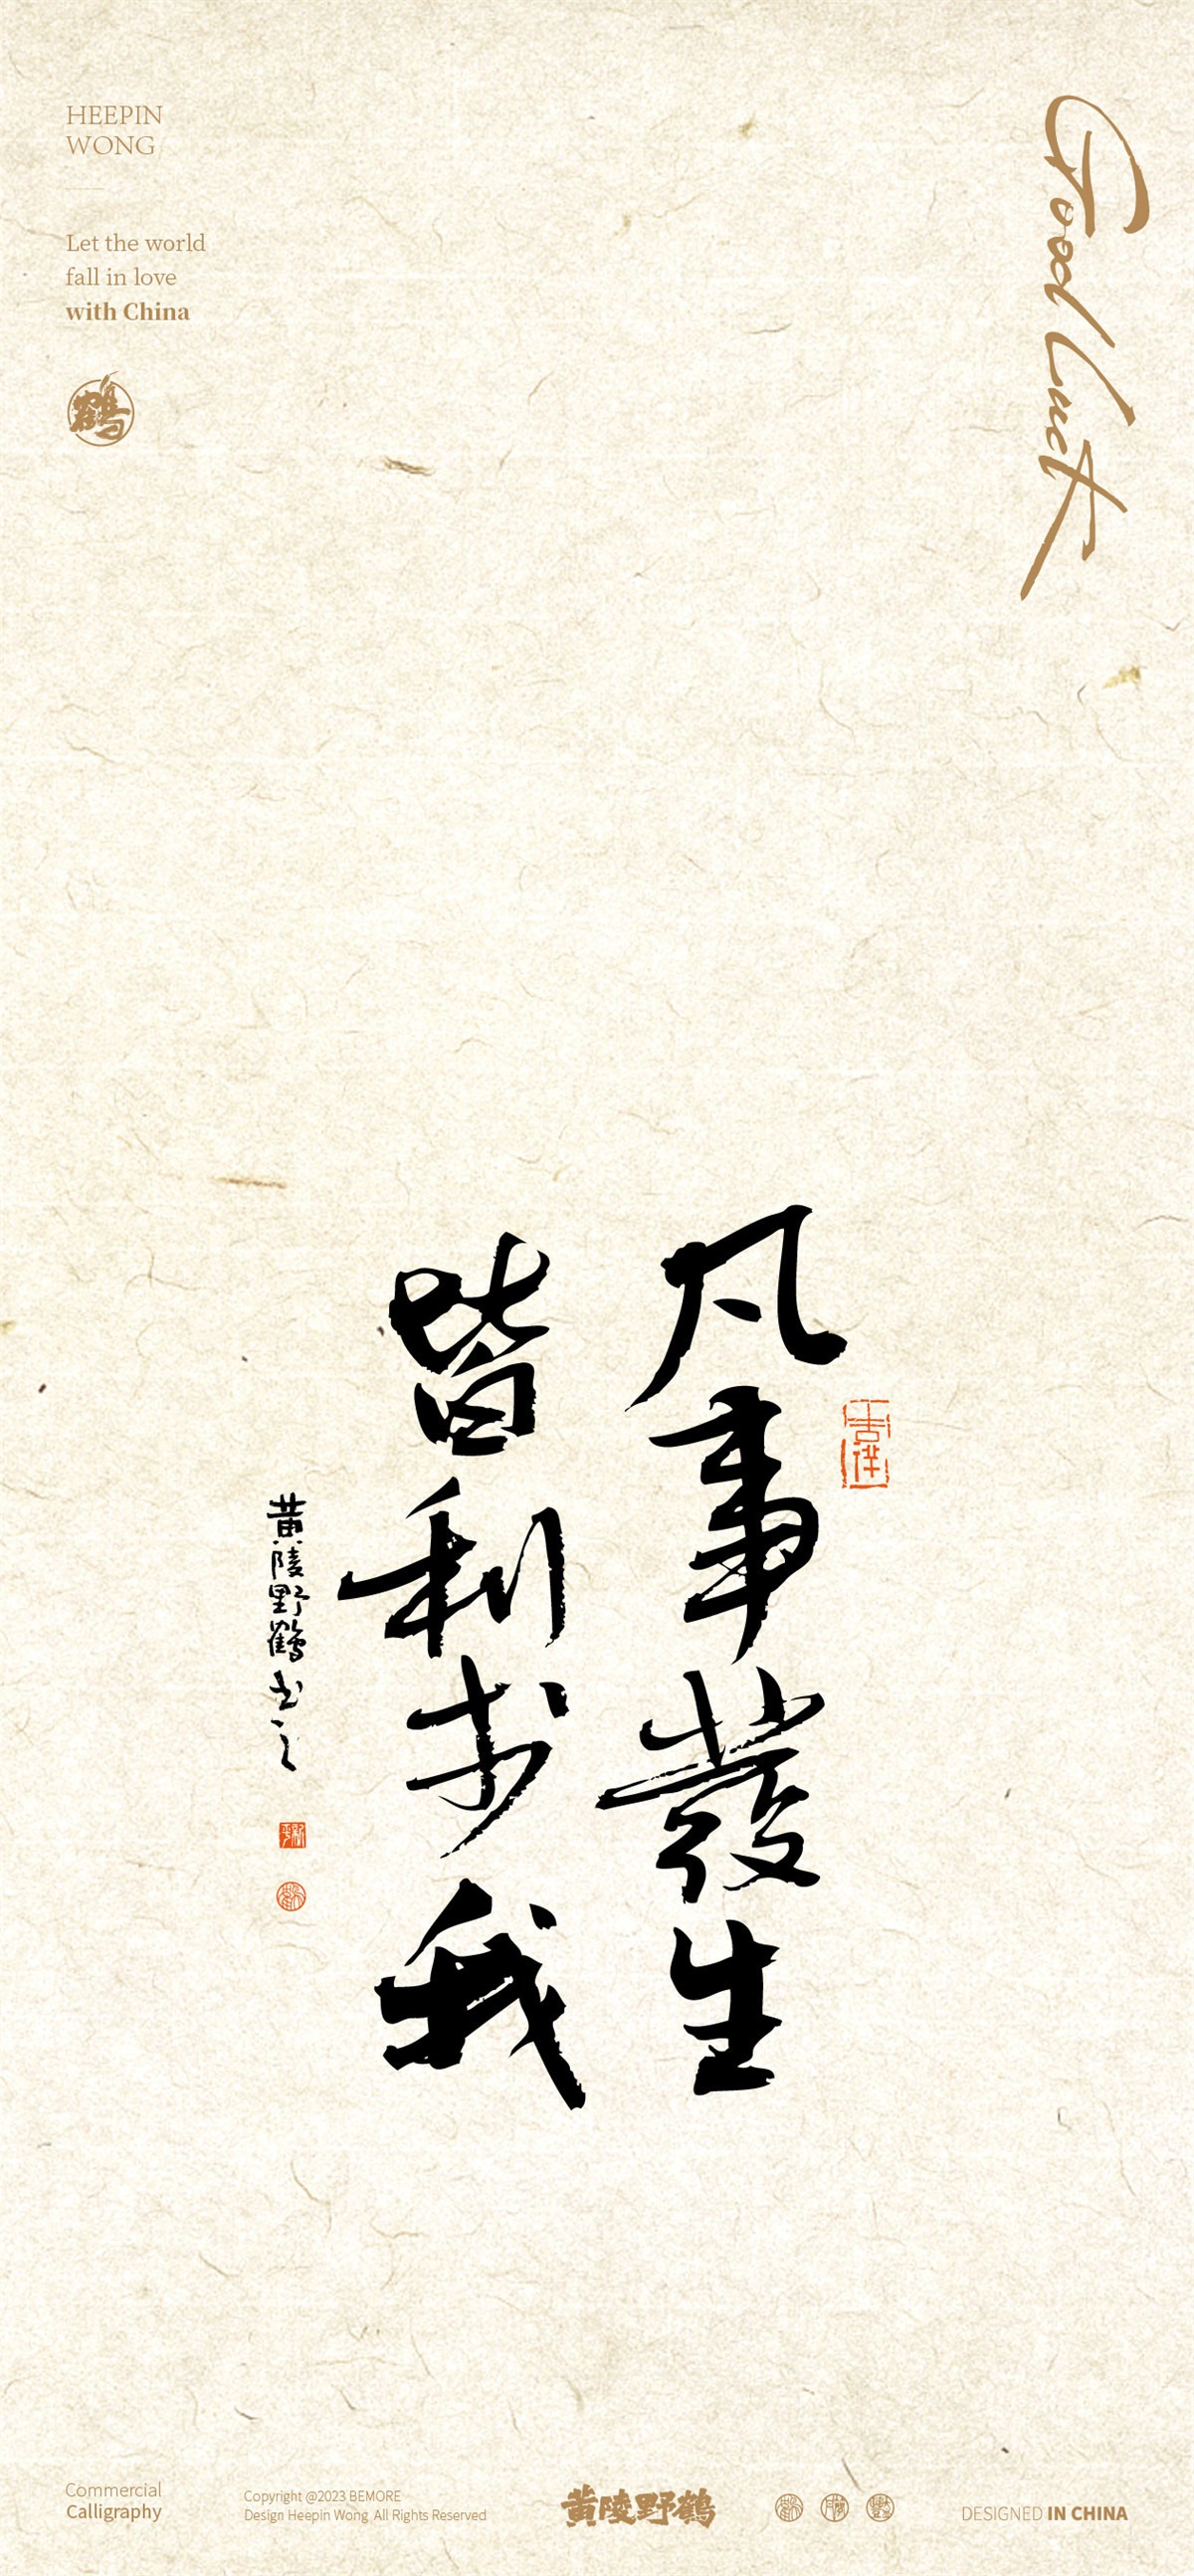 HEEPIN
WONG
Let the world
fall in love
with China
鶴
Good luck
凡事發生
皆利於我
吉祥
黄陵野鶴书之
Commercial
Calligraphy
Copyright @2023 BEMORE
Design Heepin Wong. All Rights Reserved
黄陵野鶴
DESIGNED IN CHINA